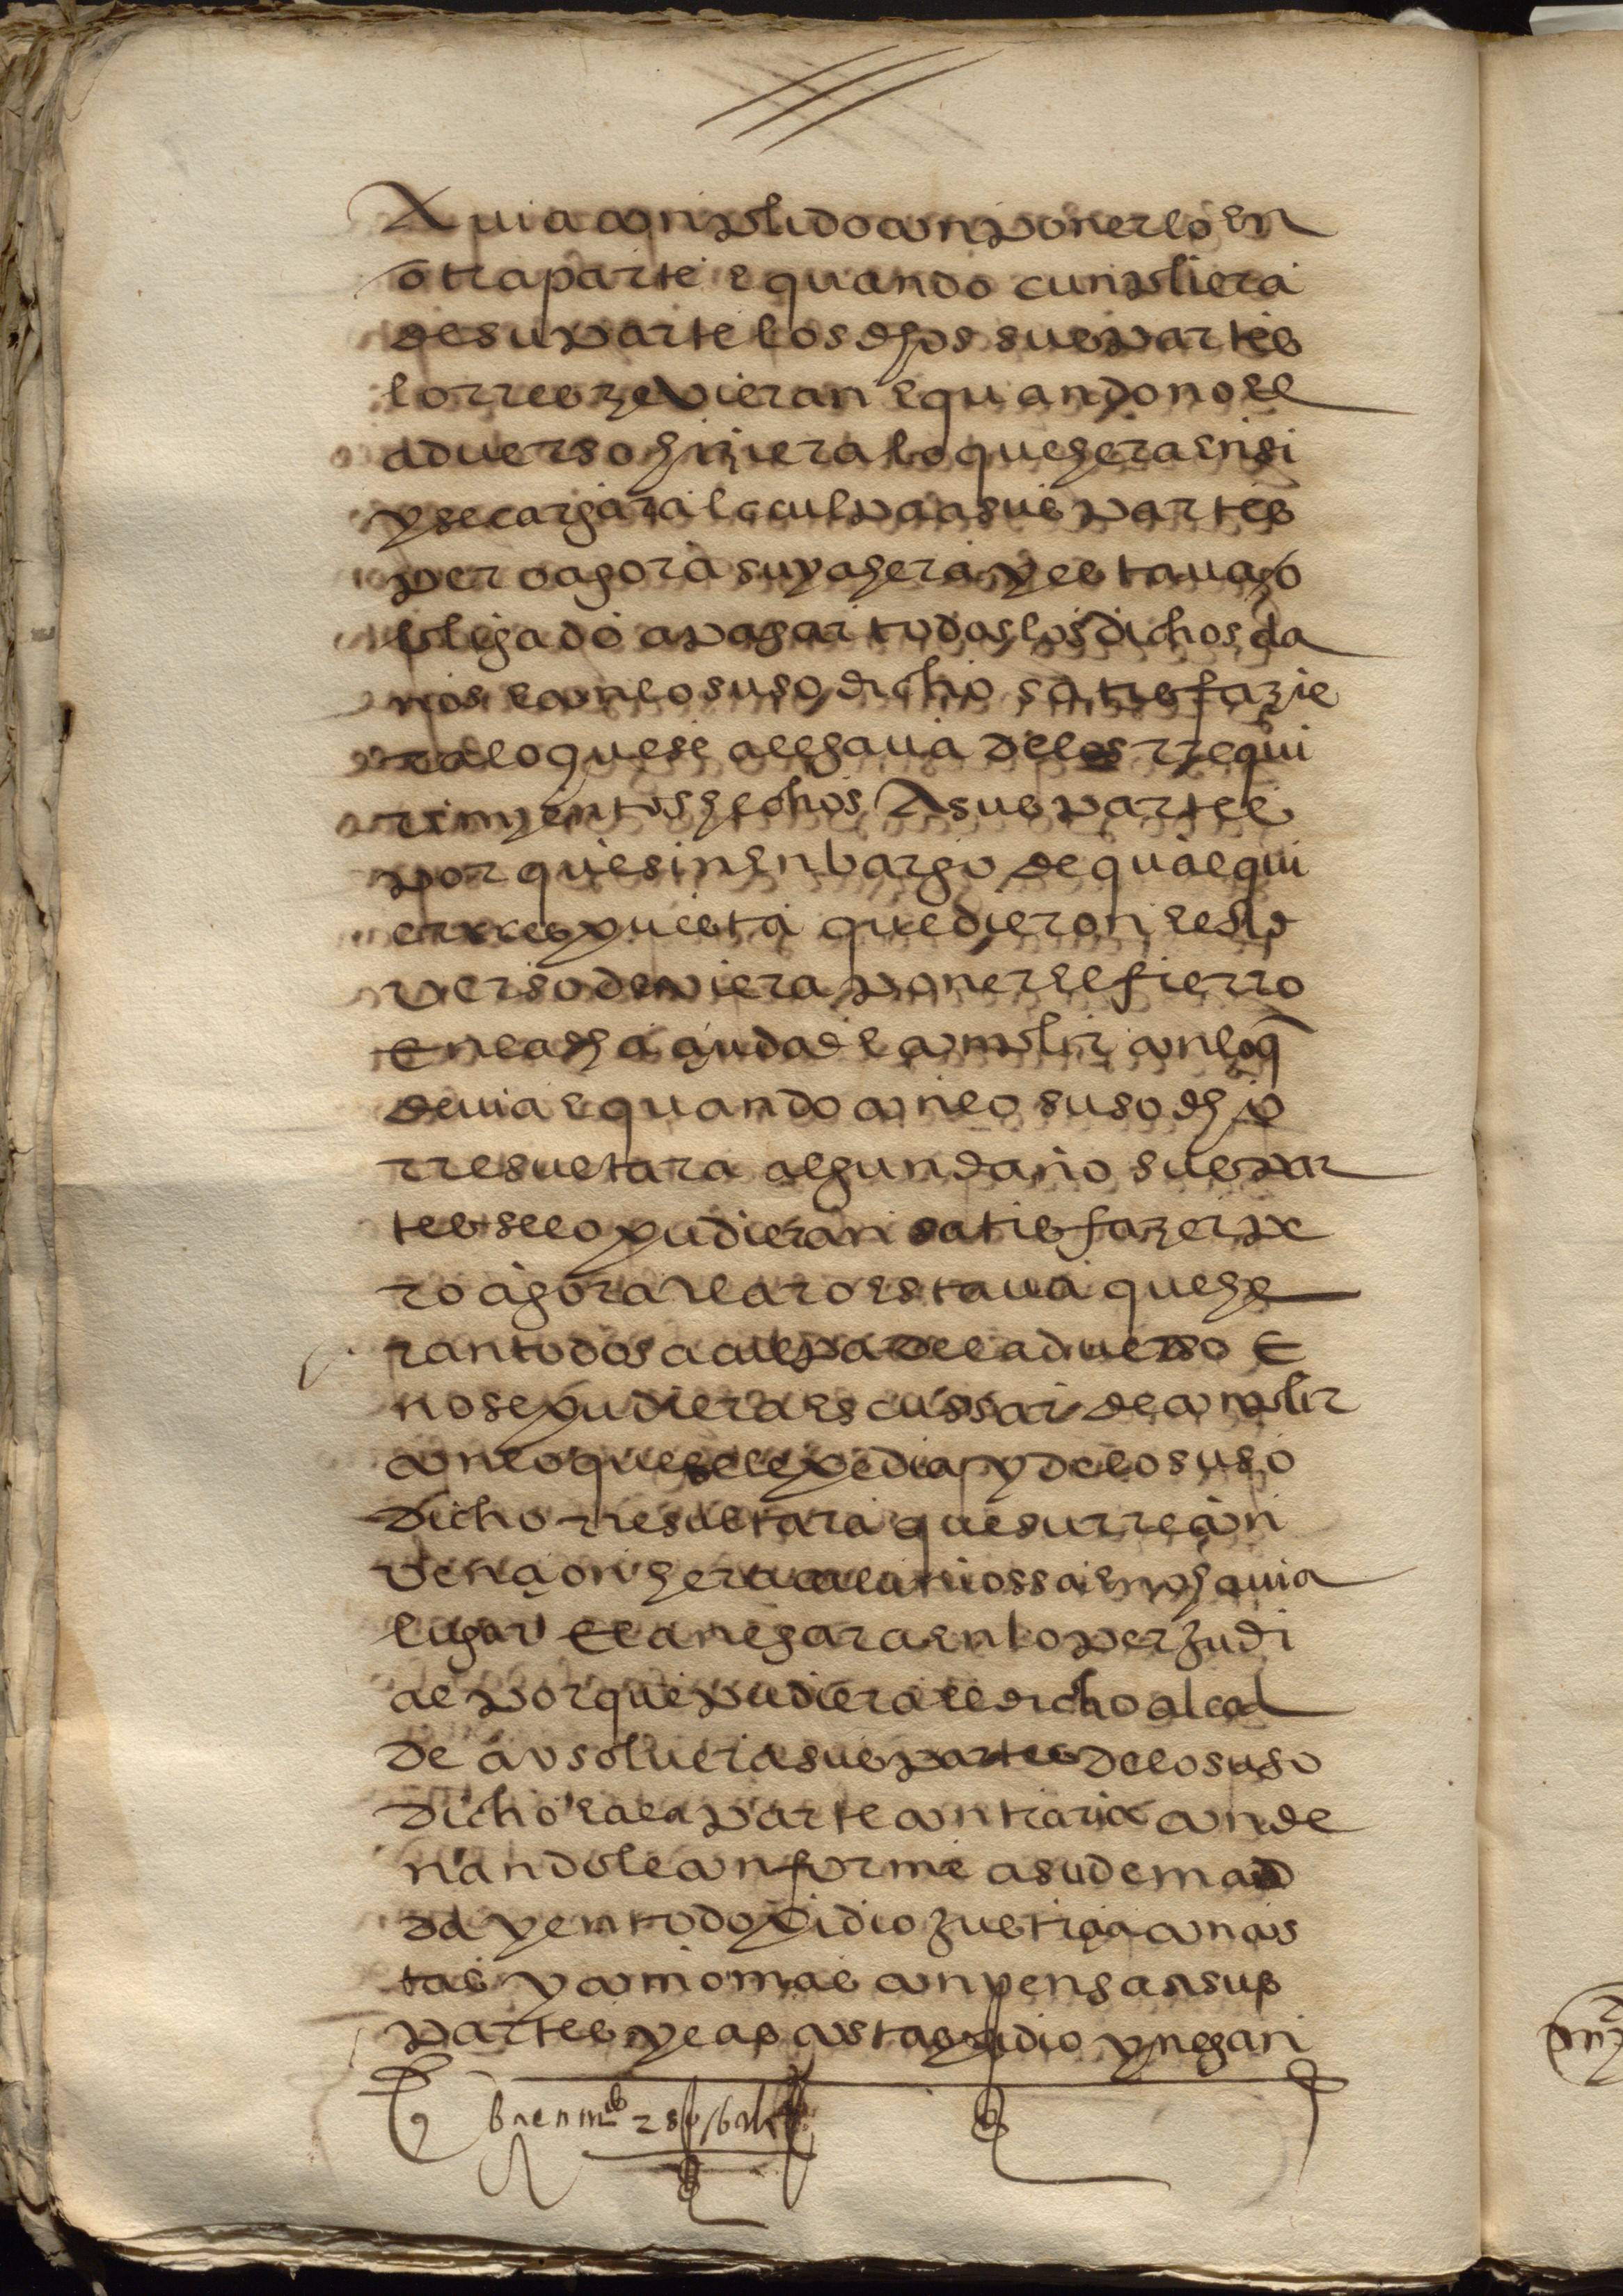 Avia conplido con ponerlo en
otra parte e quando cunpliera
de su parte los dhos sus partes
lo rresçevieran e quando no el
adverso hiziera lo que hera en si
y se cargara la culpa a sus partes
pero agora suya hera y estava o
bligado a pagar todos los dichos da
nos e con lo suso dicho satisfazie
ra lo que se alegava de los rrequi
rimyentos hechos A sus partes
por que sin enbargo de qualqui
er rrespuesta que dieron el ad
verso deviera poner el fierro
En la dha çiudad e conplir con lo q
devia e quando con lo suso dho
rresultara algun daño sus par
tes se lo pudieran satisfazer pe
ro agora claro estava que he
ran todos a culpa del adverso E
no se pudiera escussar de conplir
con lo que se le pedia y de lo suso
dicho rresultara que su rrecon
vençion hera caluniossa e no havia
lugar E la negara en lo perjudi
cial por que pudiera el dicho alcal
de absolver a sus partes de lo suso
dicho e a la parte contraria conde
nandole conforme a su deman
da y en todo pidio justiçia con cos
tas y como mas convenga a sus
partes y las costas pidio y negan